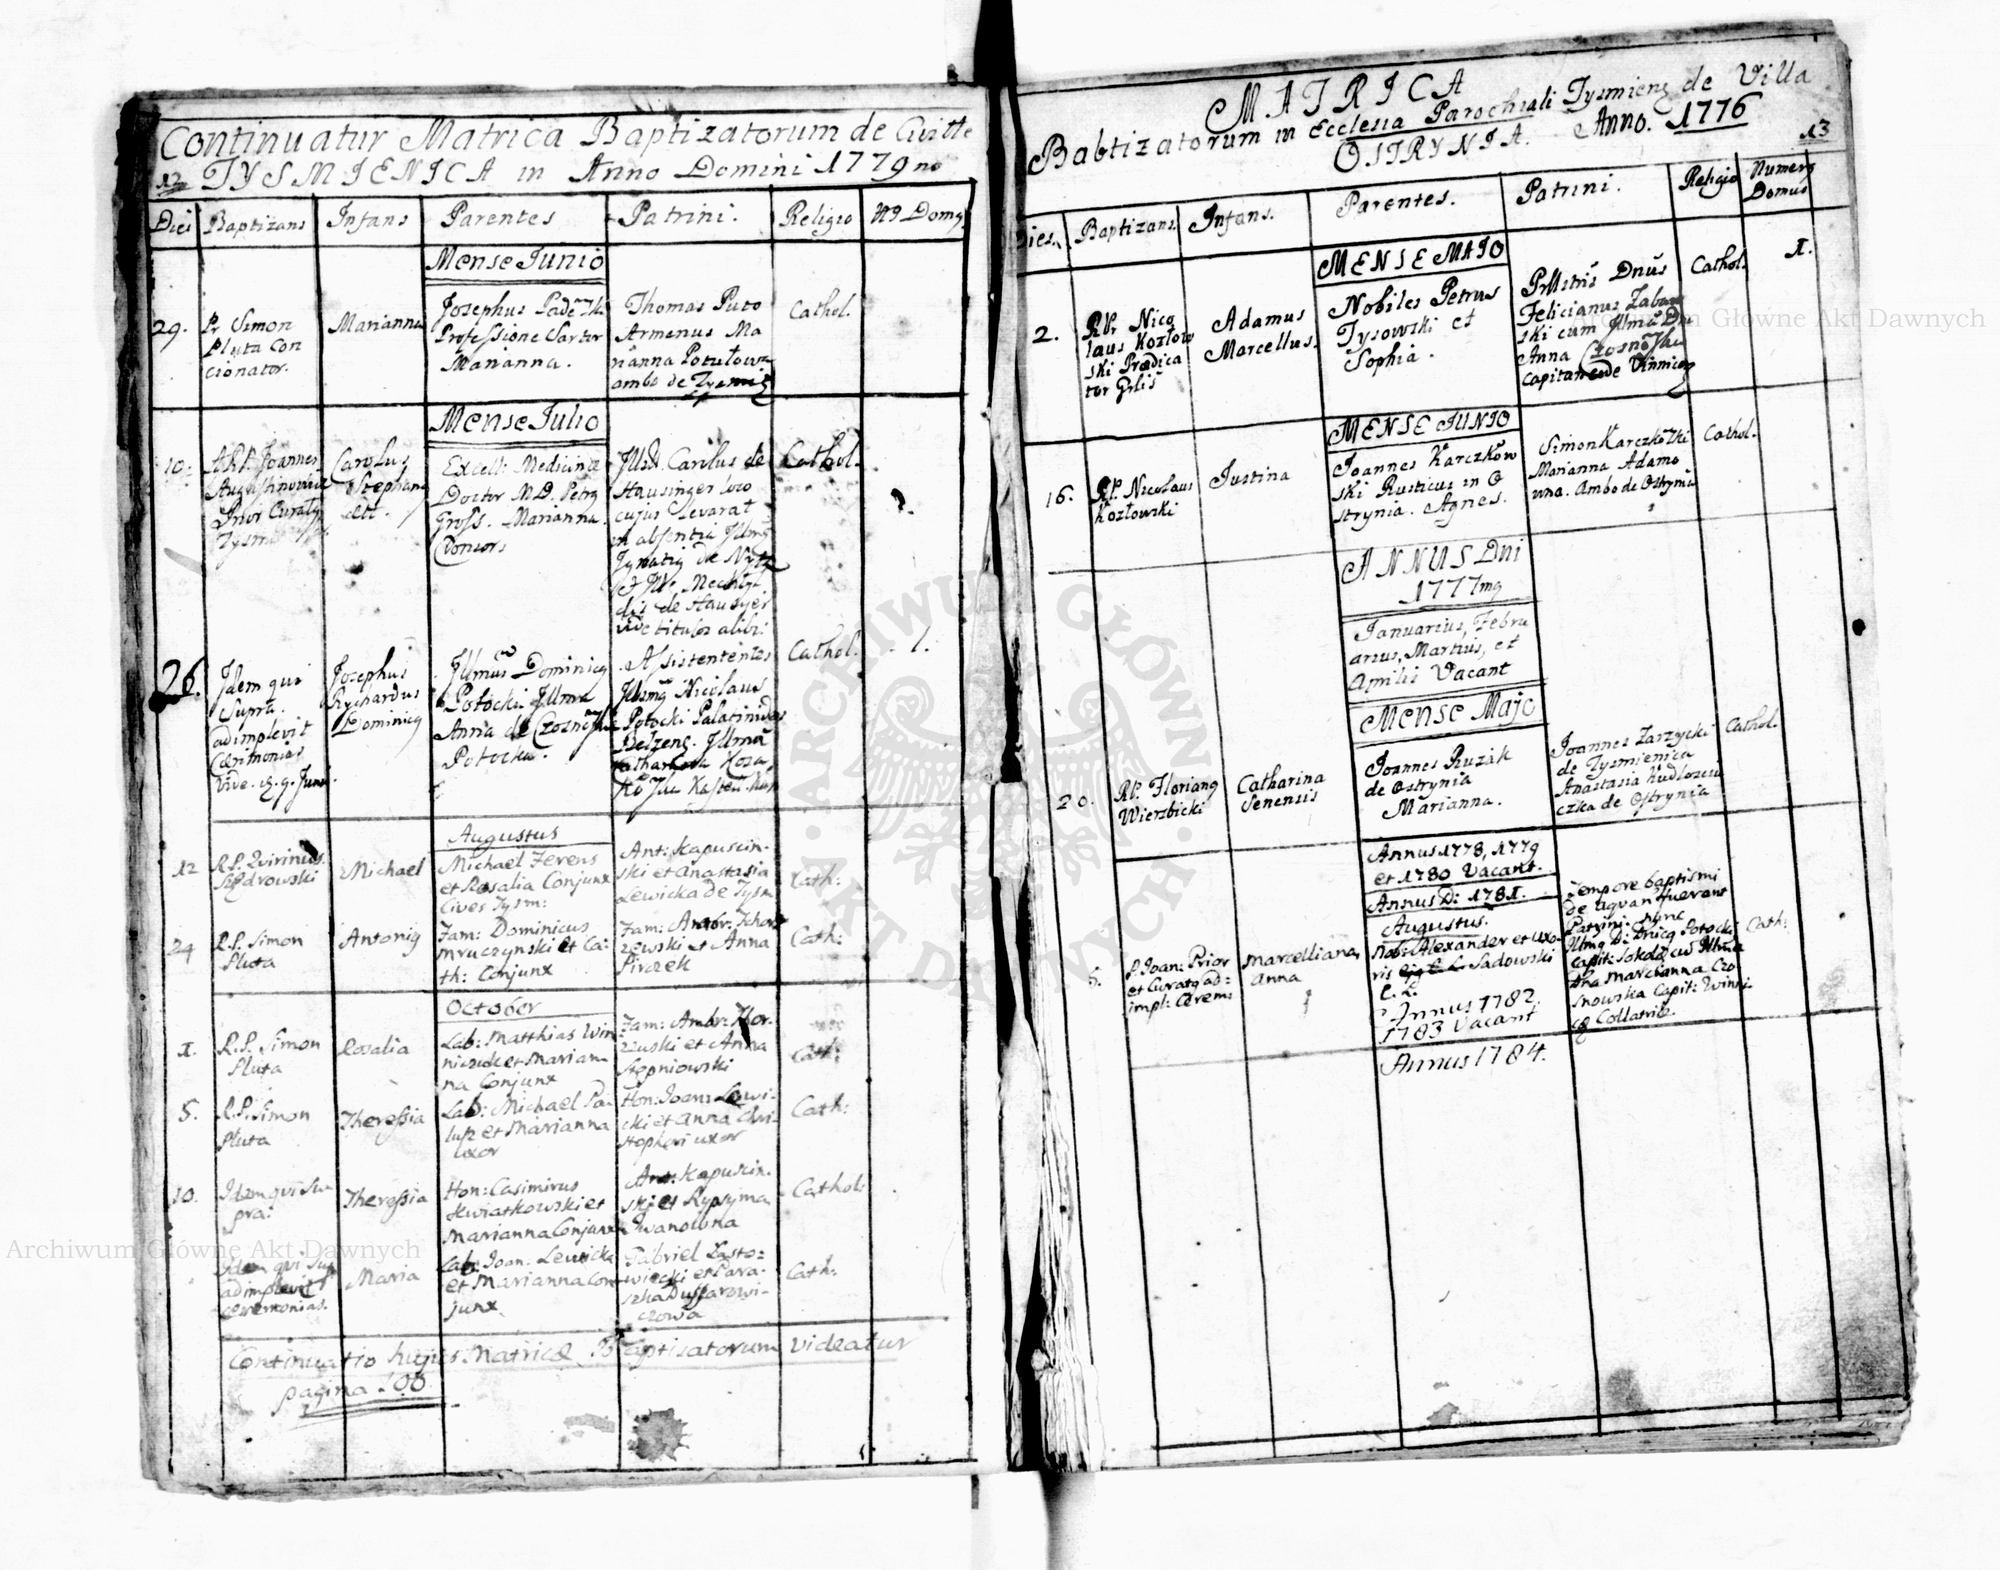 Continuatur Matrica Baptizatorum de Civitte
12 TYSMIENICA in Anno Domini 1779no
Diei Baptizans Infans Parentes Patrini. Religio No Domq
Mense Junio
29.
Pr Simon
Pluta Con
cionator.
Marianna
Josephus
Professione Sartor
Marianna.
Thomas Puto
Armenus Ma
rianna
ambo de
Cathol.
Mense Julio
10.
A.R.P. Joannes
Augustinowicz
Prior Curatq
Tysm
Carolus
Stephanq
Excell: Medicinæ
Doctor M.D. Petrq
Gross. Marianna.
Consors
Illsd. Carolus de
Hausinger loco
cujus levarat
in absentia Illmq
Ignatiq de
dis de
Vide titulos alibi.
Cathol.
26.
Idem qui
Supra.
adimplevit
Cæremonias
Vide. d. 9. Juni.
Josephus
Rychardus
Dominicq
Illmus Dominicq
Potocki Illma
Anna de
Potocka.
Assistentes
Illsmq Nicolaus
Potocki Palatinides
Belzens. Illma
Catharina
Cathol.
1.
Augustus
12
R.P. Quirinus
Michael
Michael Ferens
et Rosalia Conjunx
Cives Tysm:
Ant: Kapuscin-
ski et Anastasia
Lewicka de Tysm
Cath:
24
R.P. Simon
Pluta
Antoniq
Fam: Dominicus
Mruczynski et Ca:
th: Conjunx
Fam: Ambr:
zewski et Anna
Cath:
October
1.
R.P. Simon
Pluta
Rosalia
Lab: Matthias Win
niczuk et Marian-
na Conjunx
Fam: Ambr:
zewski et Anna
Stepniowski
Cath:
5.
R.P. Simon
Pluta
Theressia
Lab: Michael Pa-
et Marianna
uxor
Hon: Joan: Lewi-
cki et Anna Chri-
stophori uxor
Cath:
10.
Idem qui Su-
pra:
Theressia
Hon: Casimirus
Kwiatkowski et
Marianna Conjunx
Ant: Kapuscin-
ski et Rypsyma
Iwanowna
Cathol:
Idem qui Sup
adimplevit
ceremonias.
Maria
Lab: Joan: Lewicki
et Marianna Con
junx.
Gabriel Lasto-
wiecki et Para-
szka
czowa
Cath:
Continuatio hujus Matricæ Baptizatorum videatur
pagina 100
MATRICA
Babtizatorum in Ecclesia Parochiali Tysmieng de Villa
OSTRYNIA. Anno. 1776
13
Dies. Baptizans Infans. Parentes. Patrini. Religio Numerq Domus
MENSE MAIO
2.
RP. Nico
laus Kozłow
ski Prædica
tor Grlis
Adamus
Marcellus.
Nobiles Petrus
Tysowski et
Sophia.
Dnus
Felicianus
ski cum Illma Dna
Anna
Capitaneade
Cathol.
1.
MENSE JUNIO
16.
RP. Nicolaus
Kozłowski
Justina
Joannes Karczkow
ski Rusticus in O
strynia. Agnes.
Simon
Marianna Adamo
wna. Ambo de Ostrynia
Cathol.
ANNUS Dni
1777mq
Januarius, Febru
arius, Martius, et
Aprilis Vacant
Mense Majo
20.
RP. Florianq
Wierzbicki
Catharina
Senensis
Joannes Ruzak
de Ostrynia
Marianna.
Joannes Zarzycki
de Tysmienica
Anastasia
czka de Ostrynia
Cathol.
Annus 1778, 1779
et 1780 Vacant.
Annus D: 1781.
Augustus.
5.
P. Joan: Prior
et Curatq ad:
impl: Cerem:
Marcelliana
Anna
Nob: Alexander et uxo-
ris Sadowski
C. L.
Tempore baptismi
de aqva fuerant
Patrini: nunc
Illmq D: Potocki
Capit: cum Illma
Dna Marcianna Czo
snowska Capit:
Collatrix.
Cath:
Annus 1782.
1783 Vacant
Annus 1784.
Archiwum Główne Akt Dawnych
Archiwum Główne Akt Dawnych
ARCHIWUM GŁÓWNE AKT DAWNYCH